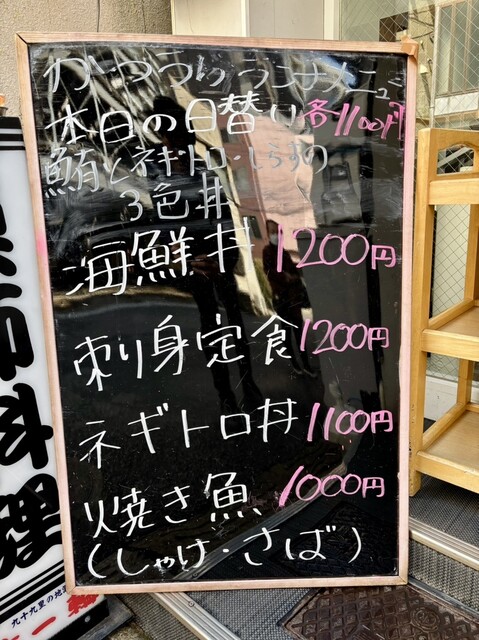 ランチメニュー
本日の日替り 各1100円
鮪とネギトロ・しらすの
3色丼
海鮮丼 1200円
刺身定食 1200円
ネギトロ丼 1100円
焼き魚 1000円
(しゃけ・さば)
料理
九十九里の地